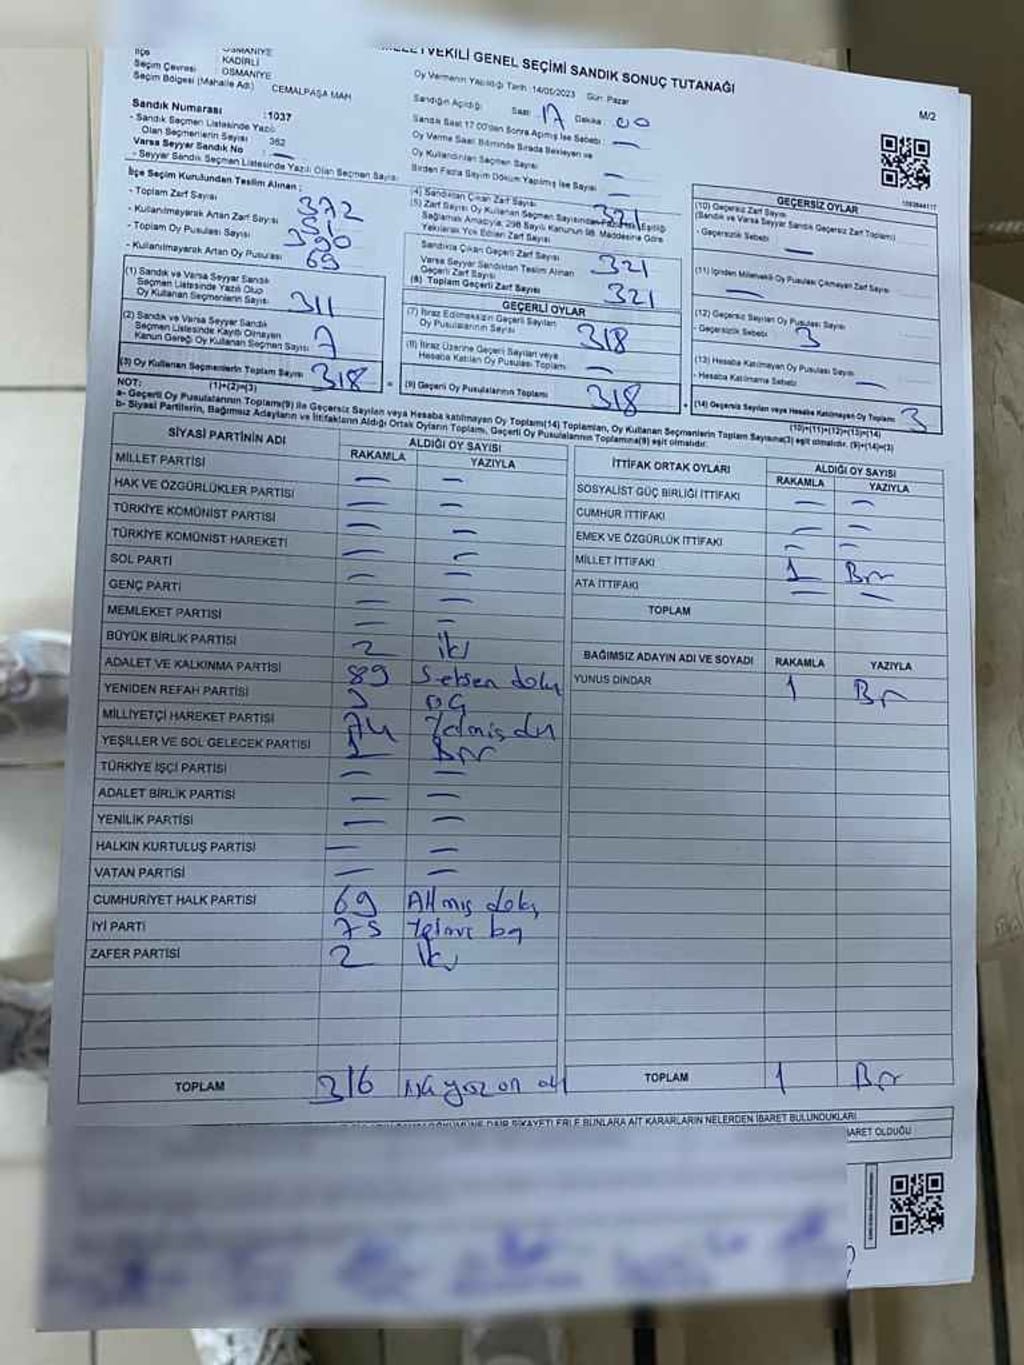 MİLLETVEKİLİ GENEL SEÇİMİ SANDIK SONUÇ TUTANAĞI
M/2
OSMANİYE
İlçe KADİRLİ
Seçim Çevresi OSMANİYE
Seçim Bölgesi (Mahalle Adı) CEMALPAŞA MAH
Sandık Numarası :1037
- Sandık Seçmen Listesinde Yazılı
Olan Seçmenlerin Sayısı 362
Varsa Seyyar Sandık No : —
- Seyyar Sandık Seçmen Listesinde Yazılı Olan Seçmen Sayısı
Oy Vermenin Yapıldığı Tarih 14/05/2023 Gün: Pazar
Sandığın Açıldığı Saat 17 Dakika 00
Sandık Saat 17.00'den Sonra Açılmış İse Sebebi: —
Oy Verme Saati Bitiminde Sırada Bekleyen ve
Oy Kullandırılan Seçmen Sayısı —
Birden Fazla Sayım Döküm Yapılmış İse Sayısı —
İlçe Seçim Kurulundan Teslim Alınan ;
- Toplam Zarf Sayısı 372
- Kullanılmayarak Artan Zarf Sayısı 51
- Toplam Oy Pusulası Sayısı 390
- Kullanılmayarak Artan Oy Pusulası 69
(1) Sandık ve Varsa Seyyar Sandık
Seçmen Listesinde Yazılı Olup
Oy Kullanan Seçmenlerin Sayısı 311
(2) Sandık ve Varsa Seyyar Sandık
Seçmen Listesinde Kayıtlı Olmayan
Kanun Gereği Oy Kullanan Seçmen Sayısı 7
(3) Oy Kullanan Seçmenlerin Toplam Sayısı 318
(1)+(2)=(3)
(4) Sandıktan Çıkan Zarf Sayısı 321
(5) Zarf Sayısı Oy Kullanan Seçmen Sayısından Eşitliği
Sağlamak Amacıyla, 298 Sayılı Kanunun 98. Maddesine Göre
Yakılarak Yok Edilen Zarf Sayısı
Sandıkta Çıkan Geçerli Zarf Sayısı 321
Varsa Seyyar Sandıktan Teslim Alınan
Geçerli Zarf Sayısı
(6) Toplam Geçerli Zarf Sayısı 321
GEÇERLİ OYLAR
(7) İtiraz Edilmeksizin Geçerli Sayılan
Oy Pusulalarının Sayısı 318
(8) İtiraz Üzerine Geçerli Sayılan veya
Hesaba Katılan Oy Pusulası Toplamı —
(9) Geçerli Oy Pusulalarının Toplamı 318
GEÇERSİZ OYLAR
(10) Geçersiz Zarf Sayısı
(Sandık ve Varsa Seyyar Sandık Geçersiz Zarf Toplamı)
- Geçersizlik Sebebi —
(11) İçinden Milletvekili Oy Pusulası Çıkmayan Zarf Sayısı
—
(12) Geçersiz Sayılan Oy Pusulası Sayısı
- Geçersizlik Sebebi 3
(13) Hesaba Katılmayan Oy Pusulası Sayısı
- Hesaba Katılmama Sebebi —
(14) Geçersiz Sayılan veya Hesaba Katılmayan Oy Toplamı 3
(10)+(11)+(12)+(13)=(14)
NOT:
a- Geçerli Oy Pusulalarının Toplamı(9) ile Geçersiz Sayılan veya Hesaba katılmayan Oy Toplamı(14) Toplamları, Oy Kullanan Seçmenlerin Toplam Sayısına(3) eşit olmalıdır. (9)+(14)=(3)
b- Siyasi Partilerin, Bağımsız Adayların ve İttifakların Aldığı Ortak Oyların Toplamı, Geçerli Oy Pusulalarının Toplamına(9) eşit olmalıdır.
SİYASİ PARTİNİN ADI ALDIĞI OY SAYISI
RAKAMLA YAZIYLA
MİLLET PARTİSİ — —
HAK VE ÖZGÜRLÜKLER PARTİSİ — —
TÜRKİYE KOMÜNİST PARTİSİ — —
TÜRKİYE KOMÜNİST HAREKETİ — —
SOL PARTİ — —
GENÇ PARTİ — —
MEMLEKET PARTİSİ — —
BÜYÜK BİRLİK PARTİSİ 2 iki
ADALET VE KALKINMA PARTİSİ 89 Seksen dokuz
YENİDEN REFAH PARTİSİ 3 üç
MİLLİYETÇİ HAREKET PARTİSİ 74 Yetmiş dört
YEŞİLLER VE SOL GELECEK PARTİSİ 1 Bir
TÜRKİYE İŞÇİ PARTİSİ — —
ADALET BİRLİK PARTİSİ — —
YENİLİK PARTİSİ — —
HALKIN KURTULUŞ PARTİSİ — —
VATAN PARTİSİ — —
CUMHURİYET HALK PARTİSİ 69 Altmış dokuz
İYİ PARTİ 75 Yetmiş beş
ZAFER PARTİSİ 2 iki
TOPLAM 316 üç yüz on altı
İTTİFAK ORTAK OYLARI ALDIĞI OY SAYISI
RAKAMLA YAZIYLA
SOSYALİST GÜÇ BİRLİĞİ İTTİFAKI — —
CUMHUR İTTİFAKI — —
EMEK VE ÖZGÜRLÜK İTTİFAKI — —
MİLLET İTTİFAKI 1 Bir
ATA İTTİFAKI — —
TOPLAM
BAĞIMSIZ ADAYIN ADI VE SOYADI RAKAMLA YAZIYLA
YUNUS DİNDAR 1 Bir
TOPLAM 1 Bir
DAİR ŞİKAYETLERLE BUNLARA AİT KARARLARIN NELERDEN İBARET BULUNDUKLARI
BARET OLDUĞU